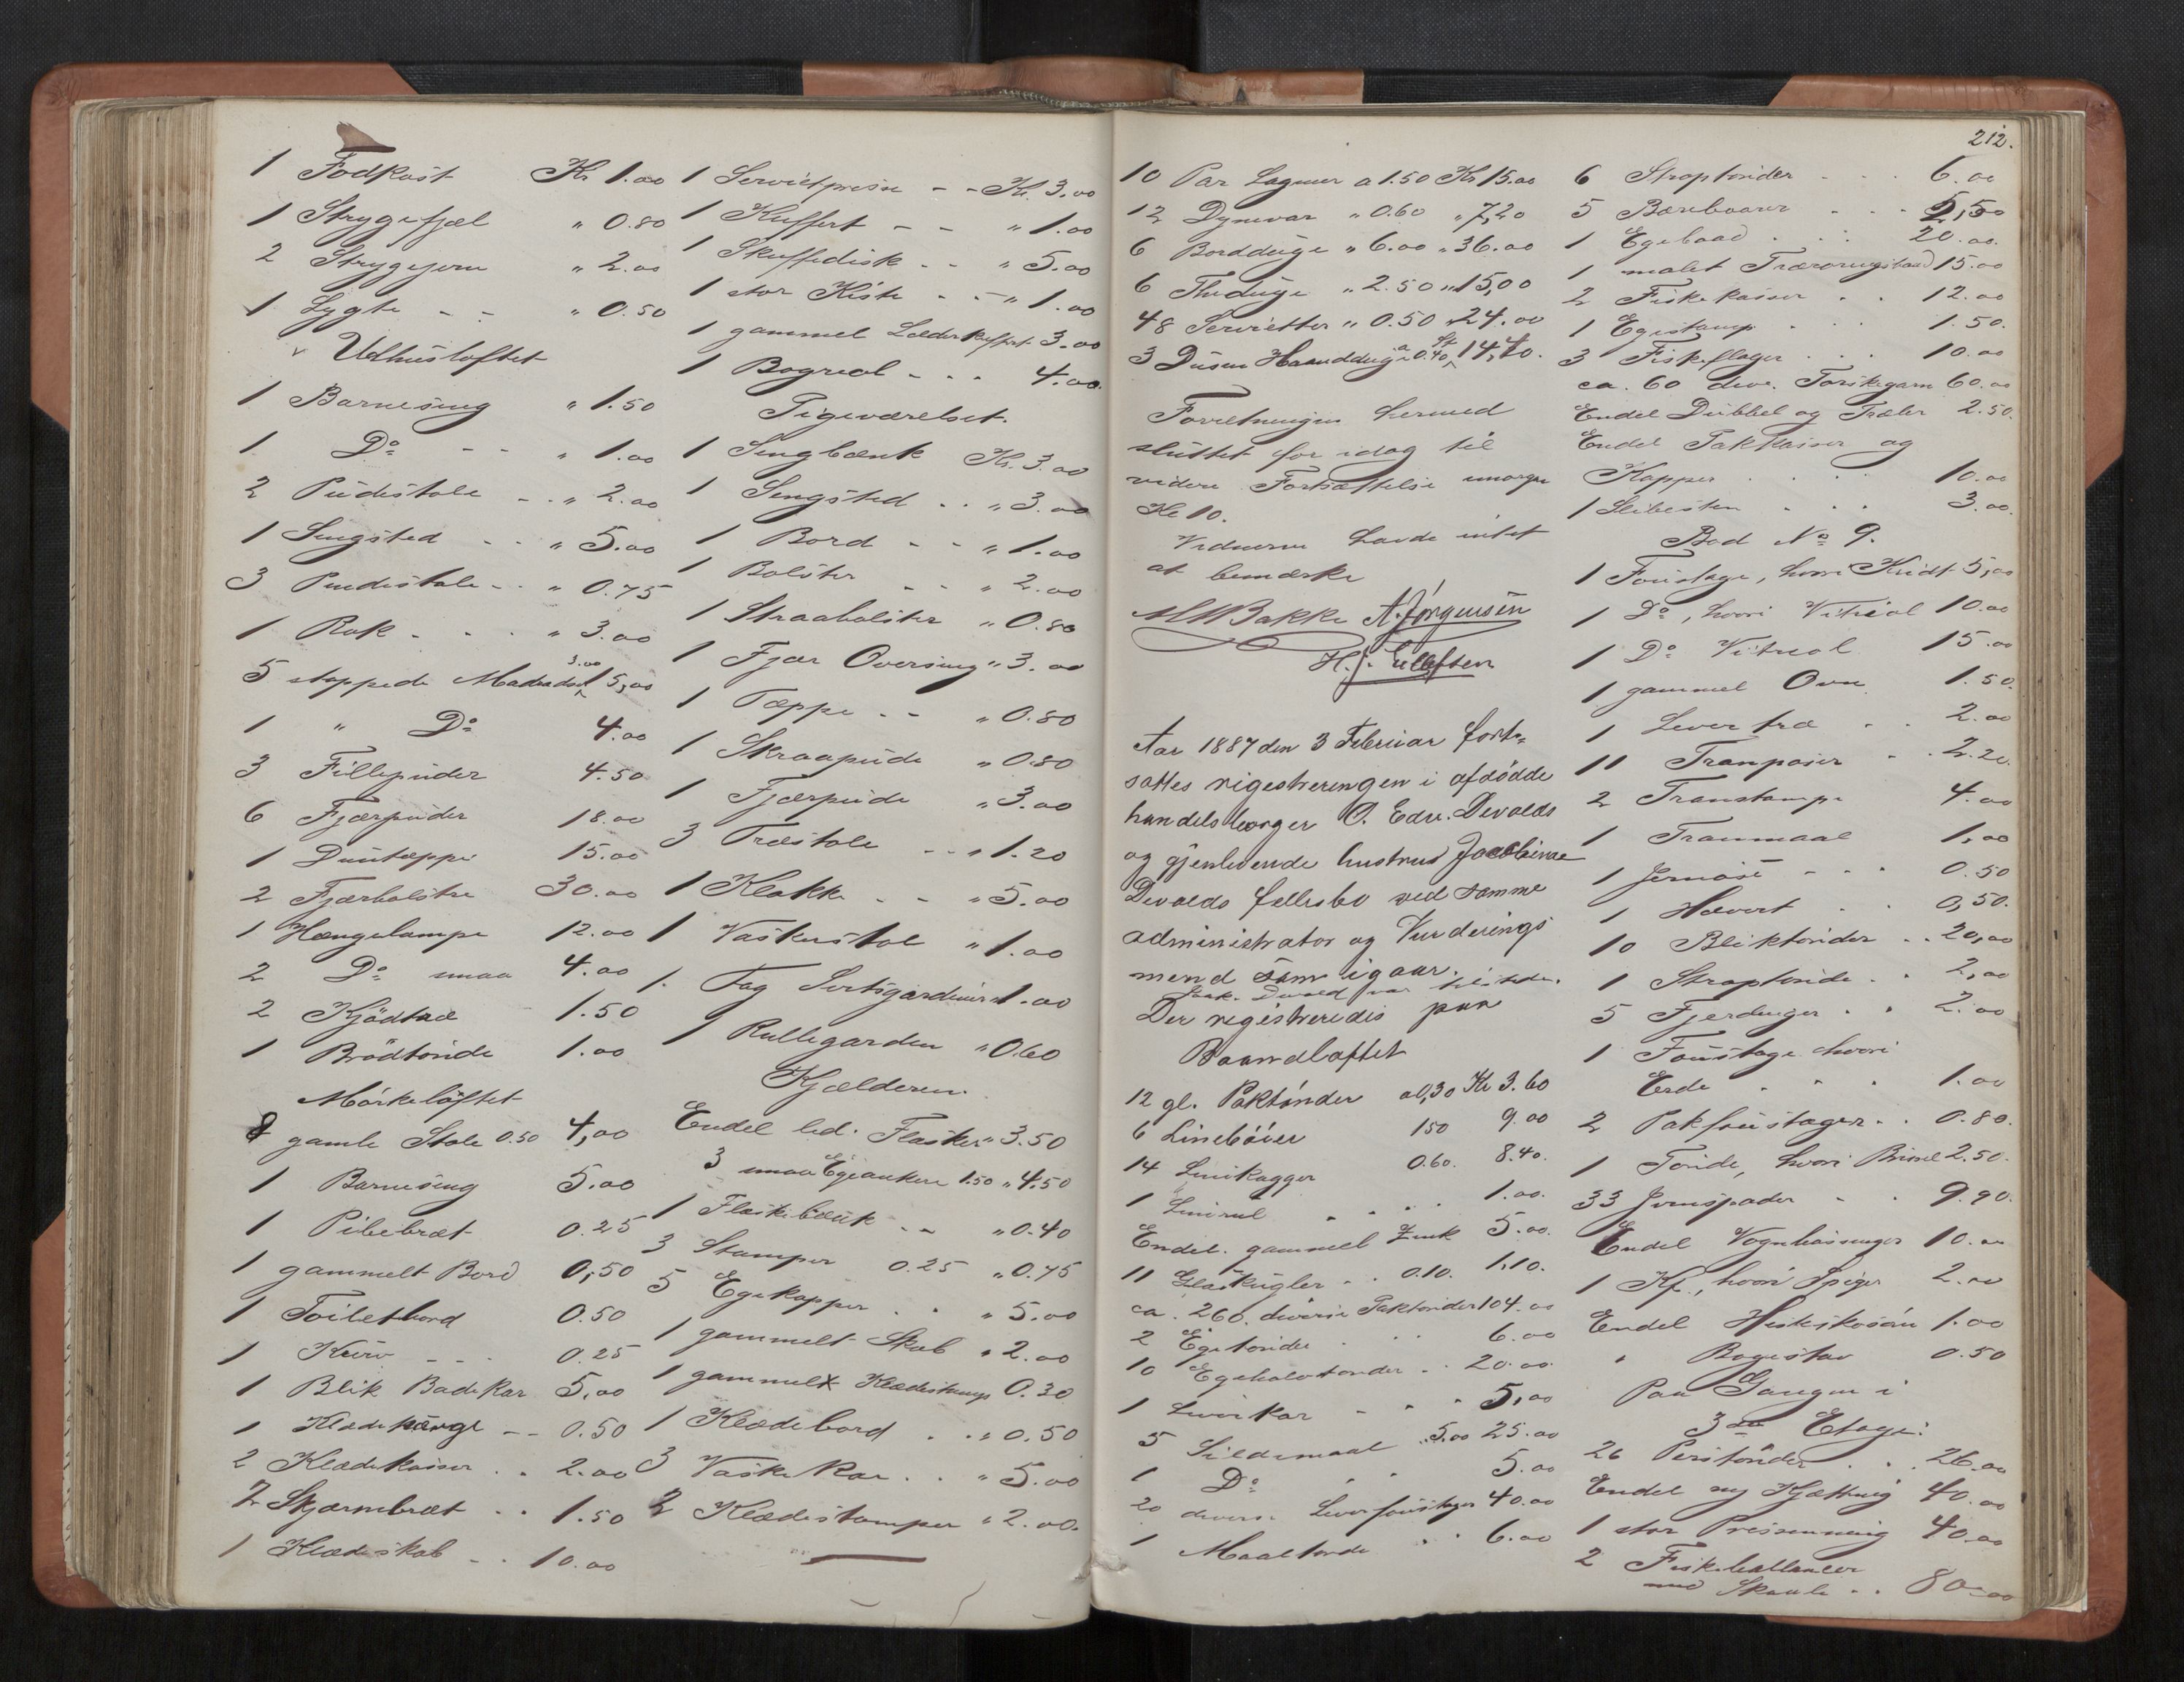 1 Fodkost Kr 1.00
1 Strygefjæl " 0.80
2 Strygejern " 2.00
1 Lygte - - " 0.50
Udhusloftet
1 Barneseng " 1.50
1 Do - - " 1.00
2 Pudestole - - " 2.00
1 Sengsted - - " 5.00
3 Pindestole - - " 0.75
1 Rok - - - " 3.00
5 stoppede Madradser 3.00 15,00
1 " Do 4.00
3 Fillepuder 4.50
6 Fjærpuder 18.00
1 Duntæppe 15.00
2 Fjærbolstre 30.00
1 Hængelampe 12.00
2 Do smaa 4.00
2 Kjödtræ 1.50
1 Brödtönde 1.00
Mörkelöftet
8 gamle Stole 0.50 4,00
1 Barneseng 5.00
1 Pibebræt 0.25
1 gammelt Bord 0,50
1 Toiletbord 0.50
1 Kurv - - - 0.25
1 Blik Badekar 5,00
1 Klædehænge - - 0.50
2 Klædekasser . . 2.00
2 Skjærmbræt . . 1.50
1 Klædeskab - . 10.00
1 Servietpresse - - Kr. 3.00
1 Kuffert - - " 1.00
1 Skuffedisk - - " 5.00
1 stor Kiste - - " 1.00
1 gammel Læderkuffert 3.00
1 Bogreol - - - 4.00
Pigeværelset.
1 Sengbænk Kr. 3.00
1 Sengsted . . " 3.00
1 Bord - - " 1.00
1 Bolster - - " 2.00
1 Straabolster " 0.80
1 Fjær Overseng " 3.00
1 Tæppe - - " 0.80
1 Skraapude " 0.80
1 Fjærpude " 3.00
3 Træstole - - " 1.20
1 Klokke - - " 5.00
1 Vaskestol " 1.00
1. Fag Sertsgardiner " 1.00
1 Rullegarden " 0.60
Kjælderen.
Endel led. Flasker " 3.50
3 smaa Egeankere 1.50 " 4.50
1 Flaskebænk - - " 0.40
3 Stamper 0.25 " 0.75
5 Egekopper . . " 5.00
1 gammelt Skab " 2.00
1 gammelt Klædestamp 0.30
1 Klædebord . . " 0.50
3 Vaske Kar . . " 5.00
2 Klædestamper " 2.00.
212.
10 Par Lagner a 1.50 Kr 15.00
12 Dynevar " 0.60 " 7,20
6 Bordduge " 6.00 " 36.00
6 Theduge " 2.50 " 15,00
48 Servietter " 0.50 " 24.00
3 Dusin Haandduge a 0.40 St 14,40.
Forretningen hermed
sluttet for idag til
videre Fortsættelse imorgen
Kl 10.
Vidnerne havde intet
at bemærke
M Bakke A. Jörgensen
H. J. Ellefsen
Aar 1887 den 3 Februar fort-
sattes rigestreringen i afdödde
handelsborger O. Edv. Devolds
og gjenlevende hustrus Jacobine
Devolds fellesbo ved samme
administrator og Vurderings
mend som igaar.
Jak. Devold var tilstede.
Der registreredis paa
Baandloftet
12 gl. Paktönder a 0,30 Kr 3.60
6 Linebóier 150 9.00
14 Linekagger 0.60. 8.40.
1 Linerul . . . . 1.00.
Endel. gammel Zink 5.00.
11 Glaskugler . . 0.10. 1.10.
ca. 260. diverse Paktönder 104.00
2 Egetönder . . . 6.00
10 Egehalvtönder . . 20.00.
1 Leverkar - - - 5,00
5 Sildemaal . 5.00 25.00
1 Do " " 5.00
20 diverse Leverfoustager 40.00
1 Maaltönde . . 6.00
6 Straptönder - - - 6.00
5 Bærebaarer . . . 2,50
1 Egebaad . . . 20.00.
1 malet Træroringsbaad 15.00
2 Fiskekasser . . 12.00
1 Egestamp . . . 1.50.
3 Fiskeflager . . . 10.00
ca. 60 dive. Torskegarn 60.00
Endel Dubbel og Træler 2.50.
Endel Pakkasser og
Kopper . . . . 10.00
1 Slibesten . . . 3.00.
Bod No 9.
1 Foustage, hvori Kridt 5,00
1 Do, hvori Vitriol 10.00
1 Do Vitriol 15.00
1 gammel Ovn 1.50.
1 Levertræ . . 2.00
11 Tranposer . . 2.20.
2 Transtampe 4.00
1 Tranmaal 1,00
1 Jernöse - - - 0.50
1 Hævert . . 0,50.
10 Bliktönder . . 20,00
1 Straptönde . . 2,00
5 Fjerdinger . . 2.00
1 Foustage hvori
Erde . . . 1.00
2 Pakfoustager . . 0.80.
1 Tönde, hvori Brisel 2.50.
33 Jernspader - . 9.90.
Endel Vognbösninger 10.00
1 Kf., hvori Spiger 2.00
Endel Hesteskosöm 1.00
" Bogestav 0.50
Paa Gangen i
3die Etage:
26 Peristönder . . . 26.00
Endel ny Kjætting 40.00
1 stor Presenning 40.00
2 Fiskeballancer
med Skaale . . 80.00